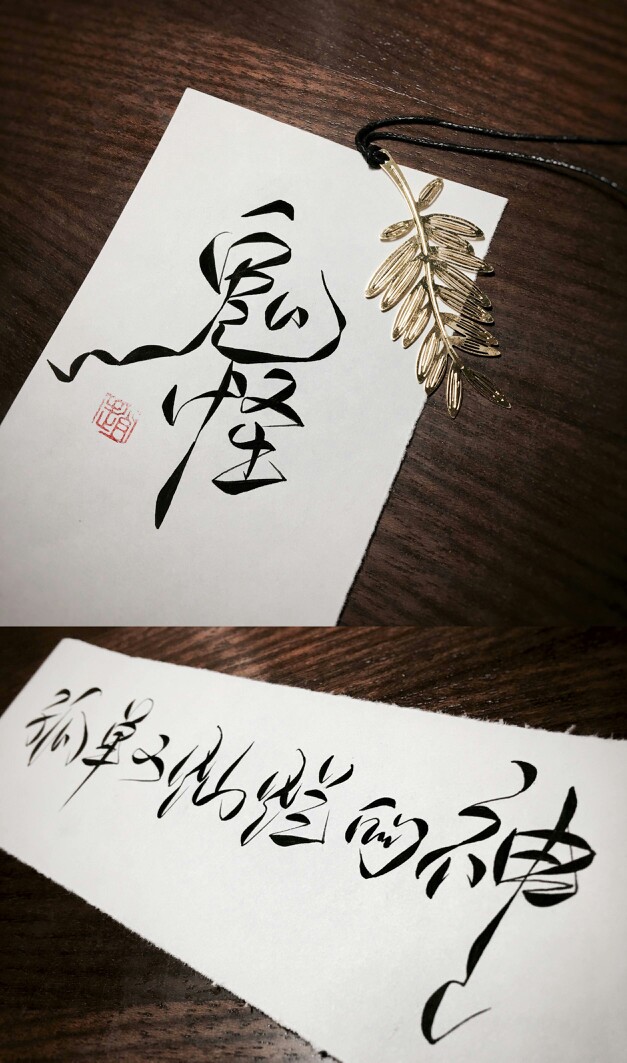 鬼怪
孤单又灿烂的神